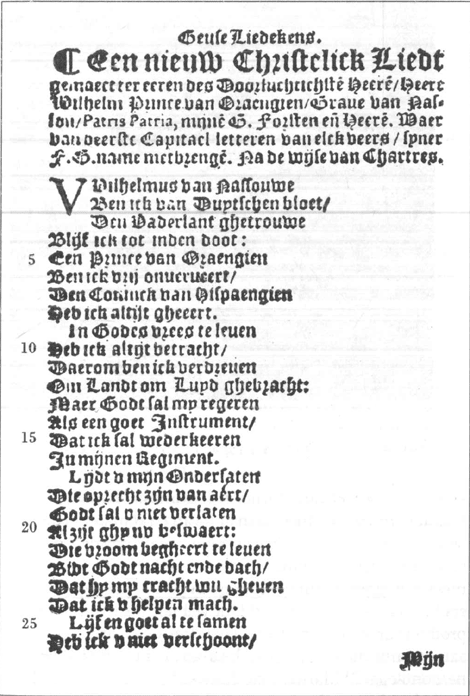 Geuse Liedekens.
¶ Een nieuw Christlick Liedt
gemaect ter eeren des Doorluchtichstē Heerē/Heere
Wilhelm Prince van Oraengien/Graue van Nas-
sou/Patris Patria, mijnē G. Forsten eñ Heerē. Waer
van deerste Capitael letteren van elck veers/syner
F.G.name metbrengē. Na de wijse van Chartres.
VVilhelmus van Nassouwe
Ben ick van Duytschen bloet/
Den Vaderlant ghetrouwe
Blijf ick tot inden doot:
5 Een Prince van Oraengien
Ben ick vrij onverueert/
Den Coninck van Hispaengien
Heb ick altijt gheeert.
In Godes vrees te leuen
10 Heb ick altijt betracht/
Daerom ben ick verdreuen
Om Landt om Luyd ghebracht:
Maer Godt sal my regeren
Als een goet Instrument/
15 Dat ick sal wederkeeren
In mijnen Regiment.
Lydt v mijn Ondersaten
Die oprecht zijn van aert/
Godt sal v niet verlaten
20 Al zijt ghy nv beswaert:
Die vroom begheert te leuen
Bidt Godt nacht ende dach/
Dat hy my cracht wil gheuen
Dat ick v helpen mach.
25 Lijf en goet al te samen
Heb ick v niet verschoont/
Mijn